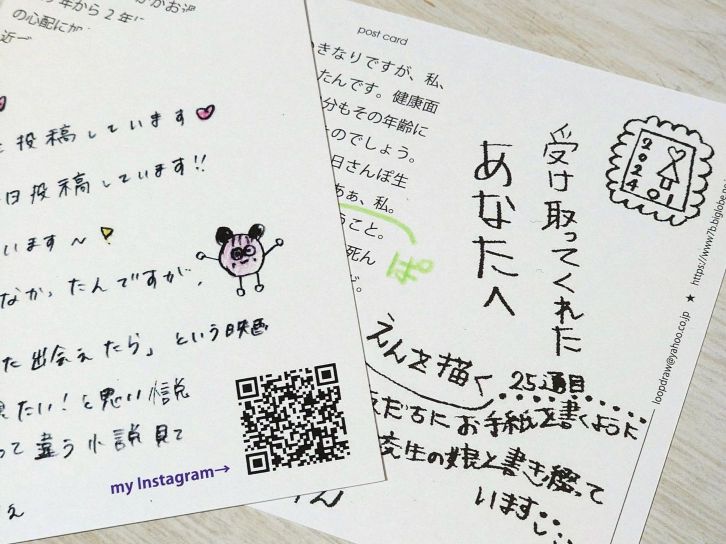 年から2年に
の心配に
近
投稿しています
日投稿しています!!
います〜
なかったんですが、
た出会えたら」という映画
見たい!と思い小説
って違う小説見て
my Instagram→
post card
きなりですが、私、
たんです。健康面
分もその年齢に
のでしょう。
日さんぽ生
あぁ、私。
うこと。
死ん
ぽ
受け取ってくれた
あなたへ
2024
01
えんを描く
25通目
友だちにお手紙を書くように
先生の娘と書き綴って
います
https://www7b.biglobe.ne
★
loopdraw@yahoo.co.jp